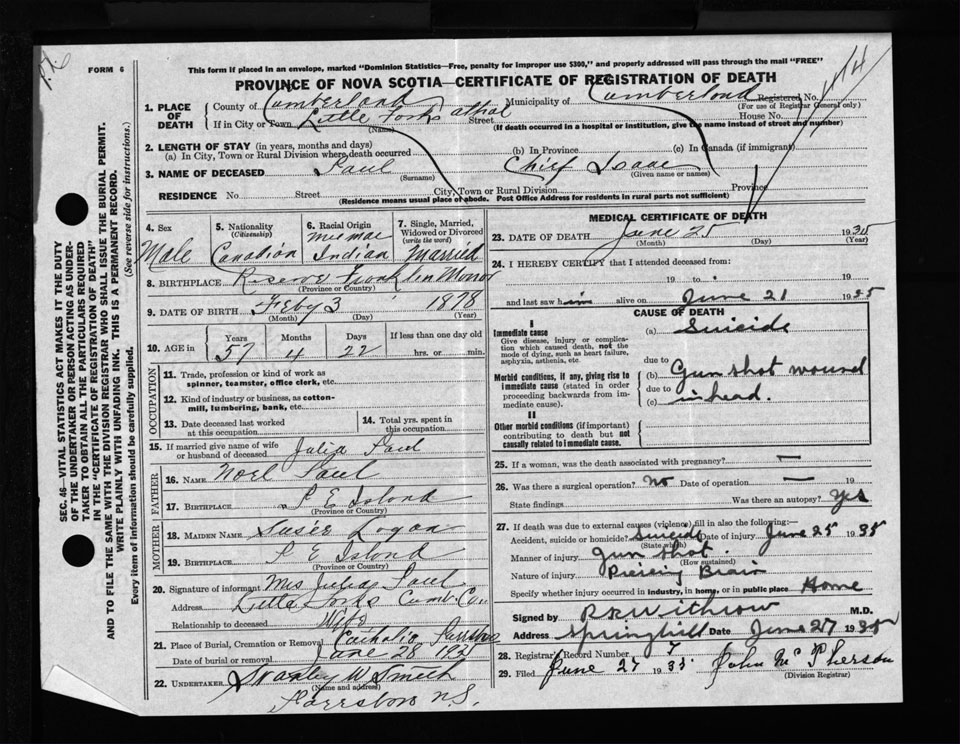 FORM 6
This form if placed in an envelope, marked "Dominion Statistics—Free, penalty for improper use $300," and properly addressed will pass through the mail "FREE"
PROVINCE OF NOVA SCOTIA—CERTIFICATE OF REGISTRATION OF DEATH
SEC. 46—VITAL STATISTICS ACT MAKES IT THE DUTY
OF THE UNDERTAKER OR PERSON ACTING AS UNDER-
TAKER TO OBTAIN ALL THE PARTICULARS REQUIRED
IN THE "CERTIFICATE OF REGISTRATION OF DEATH"
AND TO FILE THE SAME WITH THE DIVISION REGISTRAR WHO SHALL ISSUE THE BURIAL PERMIT.
WRITE PLAINLY WITH UNFADING INK. THIS IS A PERMANENT RECORD.
Every item of information should be carefully supplied. (See reverse side for instructions.)
1. PLACE OF DEATH
County of Cumberland Municipality of Cumberland Registered No.
(For use of Registrar General only)
If in City or Town Little Forks Athol Street House No.
(Name) (If death occurred in a hospital or institution, give the name instead of street and number)
2. LENGTH OF STAY (in years, months and days)
(a) In City, Town or Rural Division where death occurred (b) In Province (c) In Canada (if immigrant)
3. NAME OF DECEASED Paul Chief Isaac
(Surname) (Given name or names)
RESIDENCE No. Street City, Town or Rural Division Province
(Residence means usual place of abode. Post Office Address for residents in rural parts not sufficient)
4. Sex Male
5. Nationality (Citizenship) Canadian
6. Racial Origin Micmac Indian
7. Single, Married, Widowed or Divorced (write the word) Married
8. BIRTHPLACE Franklin Manor
(Province or Country)
9. DATE OF BIRTH Feby 3 1878
(Month) (Day) (Year)
10. AGE in Years 57 Months 4 Days 22 If less than one day old hrs. or min.
OCCUPATION
11. Trade, profession or kind of work as spinner, teamster, office clerk, etc.
12. Kind of industry or business, as cotton-mill, lumbering, bank, etc.
13. Date deceased last worked at this occupation
14. Total yrs. spent in this occupation
15. If married give name of wife or husband of deceased Julia Paul
FATHER
16. NAME Noel Paul
17. BIRTHPLACE P E Island
(Province or Country)
MOTHER
18. MAIDEN NAME Susie Logan
19. BIRTHPLACE P E Island
(Province or Country)
20. Signature of informant Mrs Julia Paul
Address Little Forks Cumb. Co
Relationship to deceased Wife
21. Place of Burial, Cremation or Removal Catholic Parrsboro
Date of burial or removal June 28 1935
22. UNDERTAKER Stanley W Smith
(Name and address)
Parrsboro N.S.
MEDICAL CERTIFICATE OF DEATH
23. DATE OF DEATH June 25 1935
(Month) (Day) (Year)
24. I HEREBY CERTIFY that I attended deceased from:
19 to 19
and last saw him alive on June 21 1935
CAUSE OF DEATH
I
Immediate cause
Give disease, injury or complication which caused death, not the mode of dying, such as heart failure, asphyxia, asthenia, etc.
(a) Suicide
due to
Morbid conditions, if any, giving rise to immediate cause (stated in order proceeding backwards from immediate cause).
(b) Gun shot wound
due to
(c) in head.
II
Other morbid conditions (if important) contributing to death but not causally related to immediate cause.
25. If a woman, was the death associated with pregnancy? —
26. Was there a surgical operation? No Date of operation —
State findings Was there an autopsy? Yes
27. If death was due to external causes (violence) fill in also the following:
Accident, suicide or homicide? Suicide Date of injury June 25 1935
(State which)
Manner of injury Gun shot
(How sustained)
Nature of injury Piercing Brain
Specify whether injury occurred in industry, in home, or in public place Home
Signed by Withrow M.D.
Address Springhill Date June 27 1935
28. Registrar's Record Number 7
29. Filed June 27 1935 John McPherson
(Division Registrar)